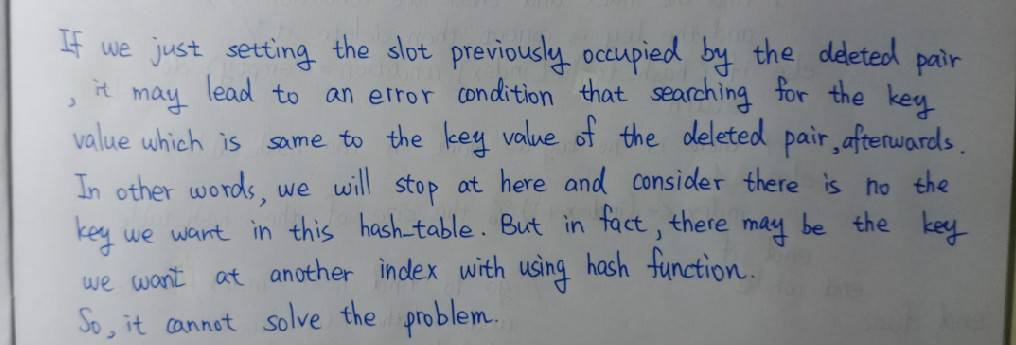 If we just setting the slot previously occupied by the deleted pair
, it may lead to an error condition that searching for the key
value which is same to the key value of the deleted pair, afterwards.
In other words, we will stop at here and consider there is no the
key we want in this hash_table. But in fact, there may be the key
we want at another index with using hash function.
So, it cannot solve the problem.